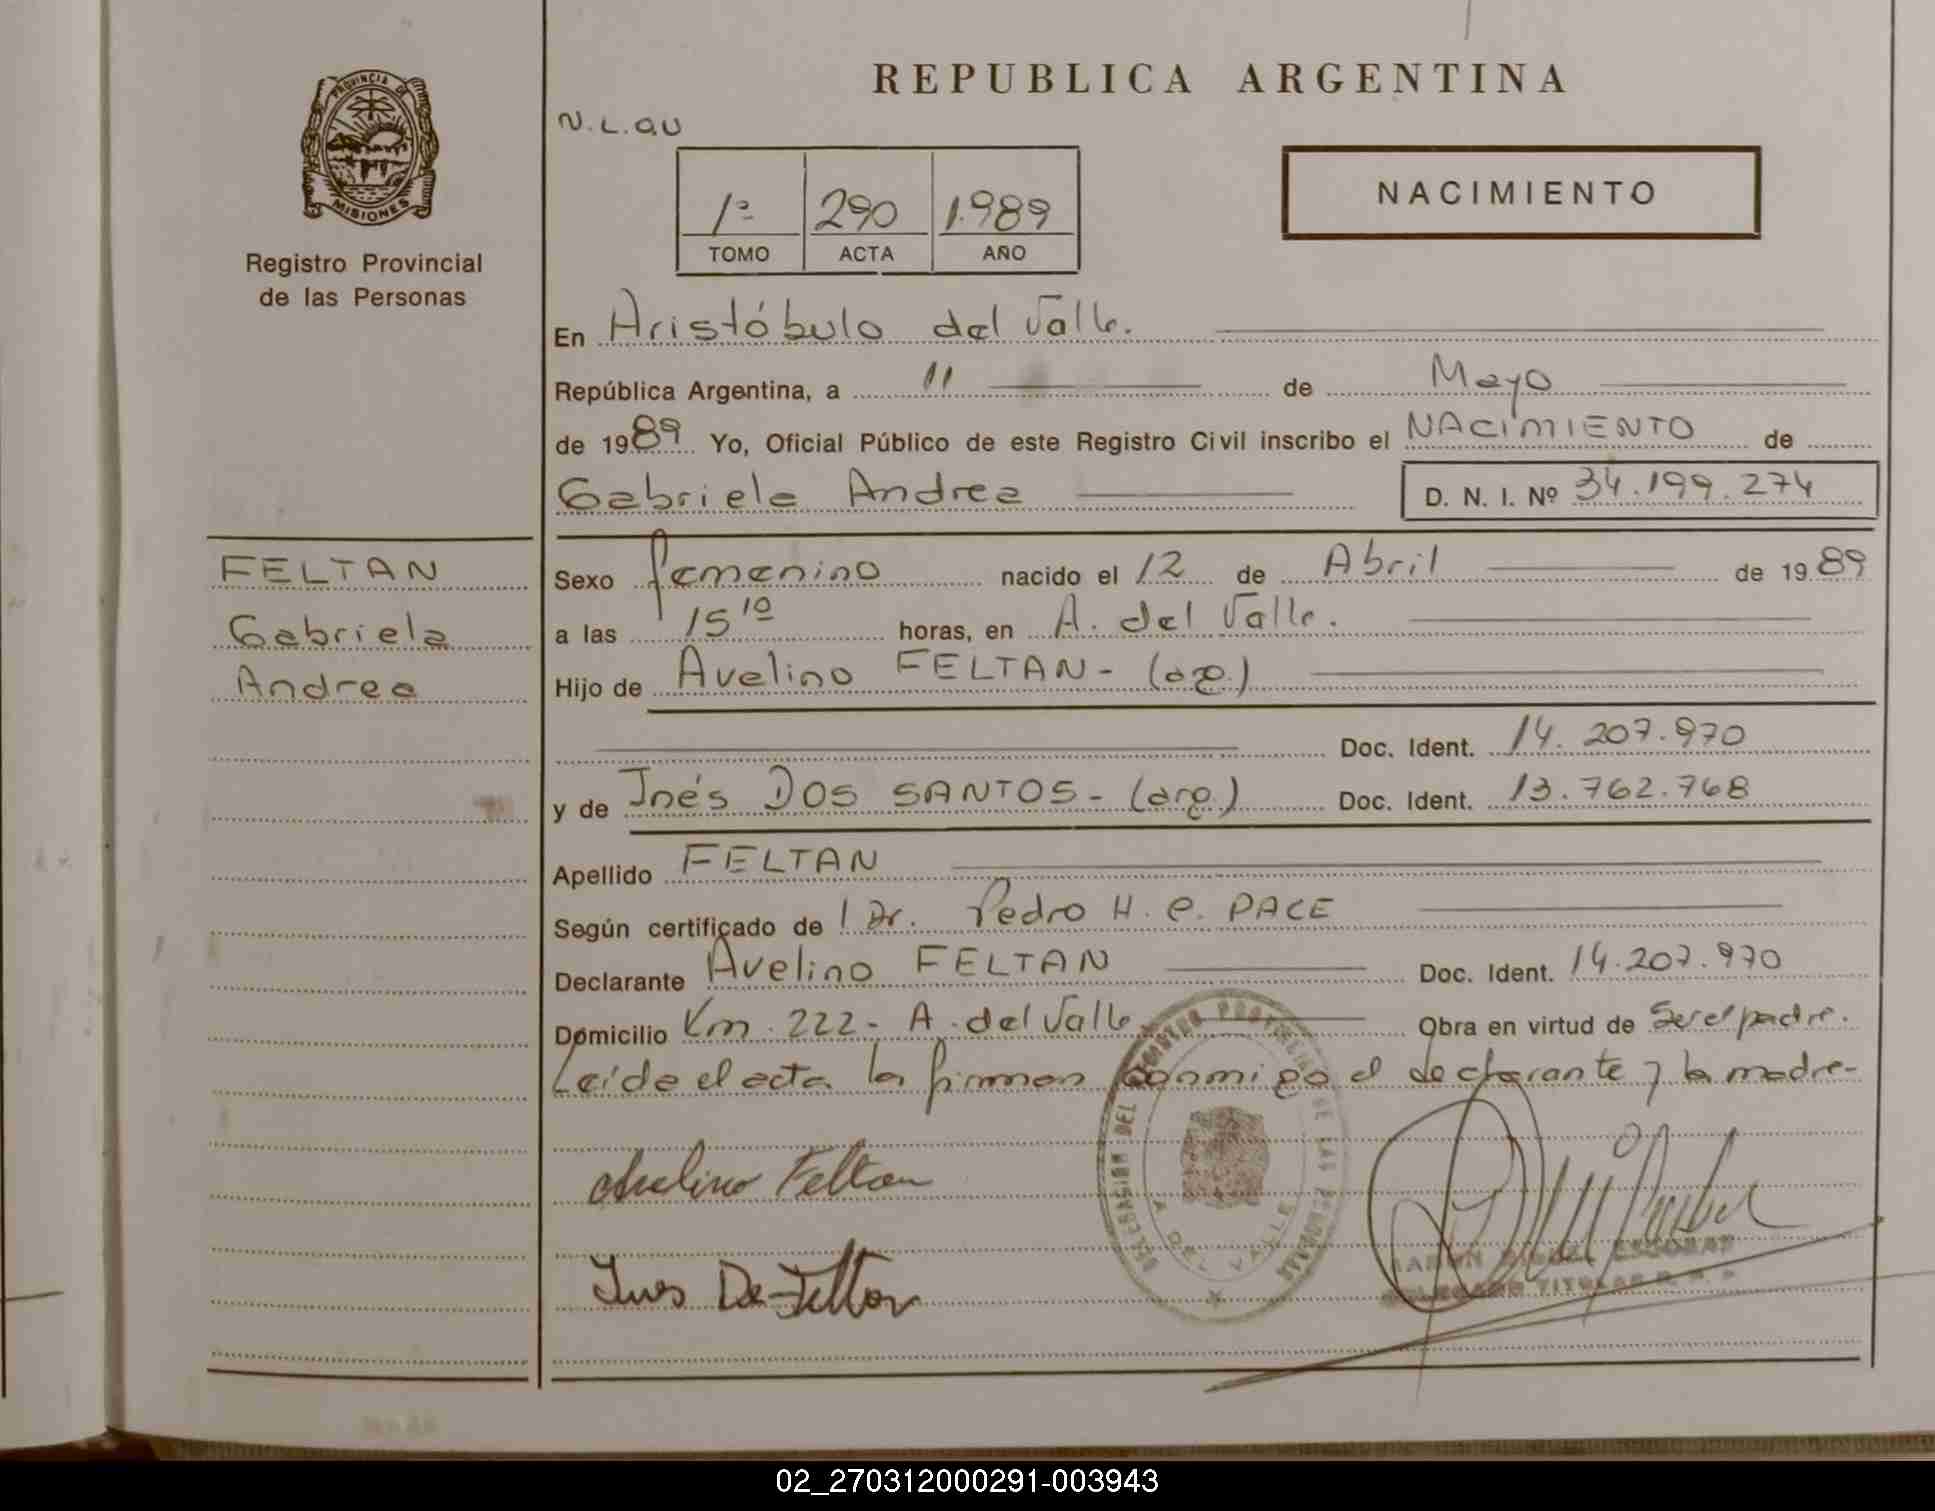 REPUBLICA ARGENTINA
PROVINCIA DE
MISIONES
Registro Provincial
de las Personas
N.L.QU
1º 290 1.989
TOMO ACTA AÑO
NACIMIENTO
En Aristóbulo del Valle.
República Argentina, a 11 de Mayo
de 1989 Yo, Oficial Público de este Registro Civil inscribo el NACIMIENTO de
Gabriela Andrea D. N. I. Nº 34.199.274
FELTAN
Gabriela
Andrea
Sexo femenino nacido el 12 de Abril de 1989
a las 15 10 horas, en A. del Valle.
Hijo de Avelino FELTAN- (arg.)
Doc. Ident. 14.207.970
y de Inés DOS SANTOS- (arg.) Doc. Ident. 13.762.768
Apellido FELTAN
Según certificado de l Dr. Pedro H. C. PACE
Declarante Avelino FELTAN Doc. Ident. 14.207.970
Domicilio Km. 222- A. del Valle Obra en virtud de Ser el padre.
Leída el acta la firman conmigo el declarante y la madre-
DELEGACION DEL REGISTRO PROVINCIAL DE LAS PERSONAS
A. DEL VALLE
Avelino Feltan
Ines De Feltan
ESCOBAR
DELEGADO TITULAR R. P. P.
02_270312000291-003943